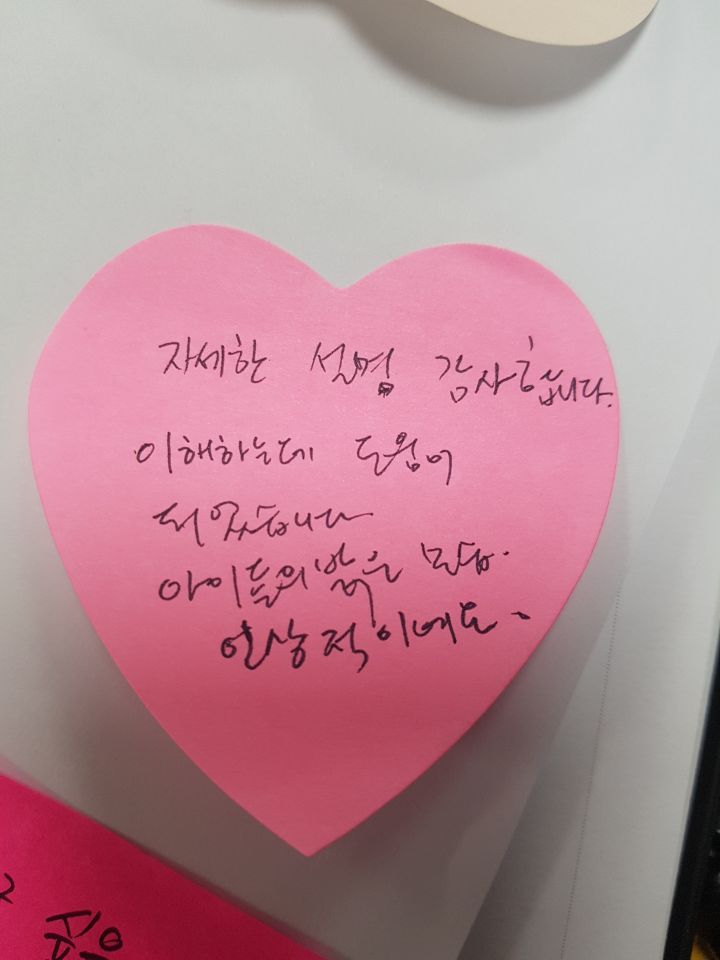 자세한 설명 감사합니다.
이해하는데 도움이
되었습니다
아이들의 밝은 모습.
인상적이에요.